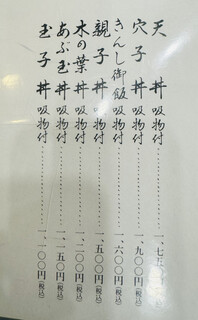 天丼 吸物付 一、七五〇円(税込)
穴子丼 吸物付 一、九〇〇円(税込)
きんし御飯 吸物付 一、六〇〇円(税込)
親子丼 吸物付 一、五〇〇円(税込)
木の葉丼 吸物付 一、一〇〇円(税込)
あぶ玉丼 吸物付 一、一五〇円(税込)
玉子丼 吸物付 一、一〇〇円(税込)